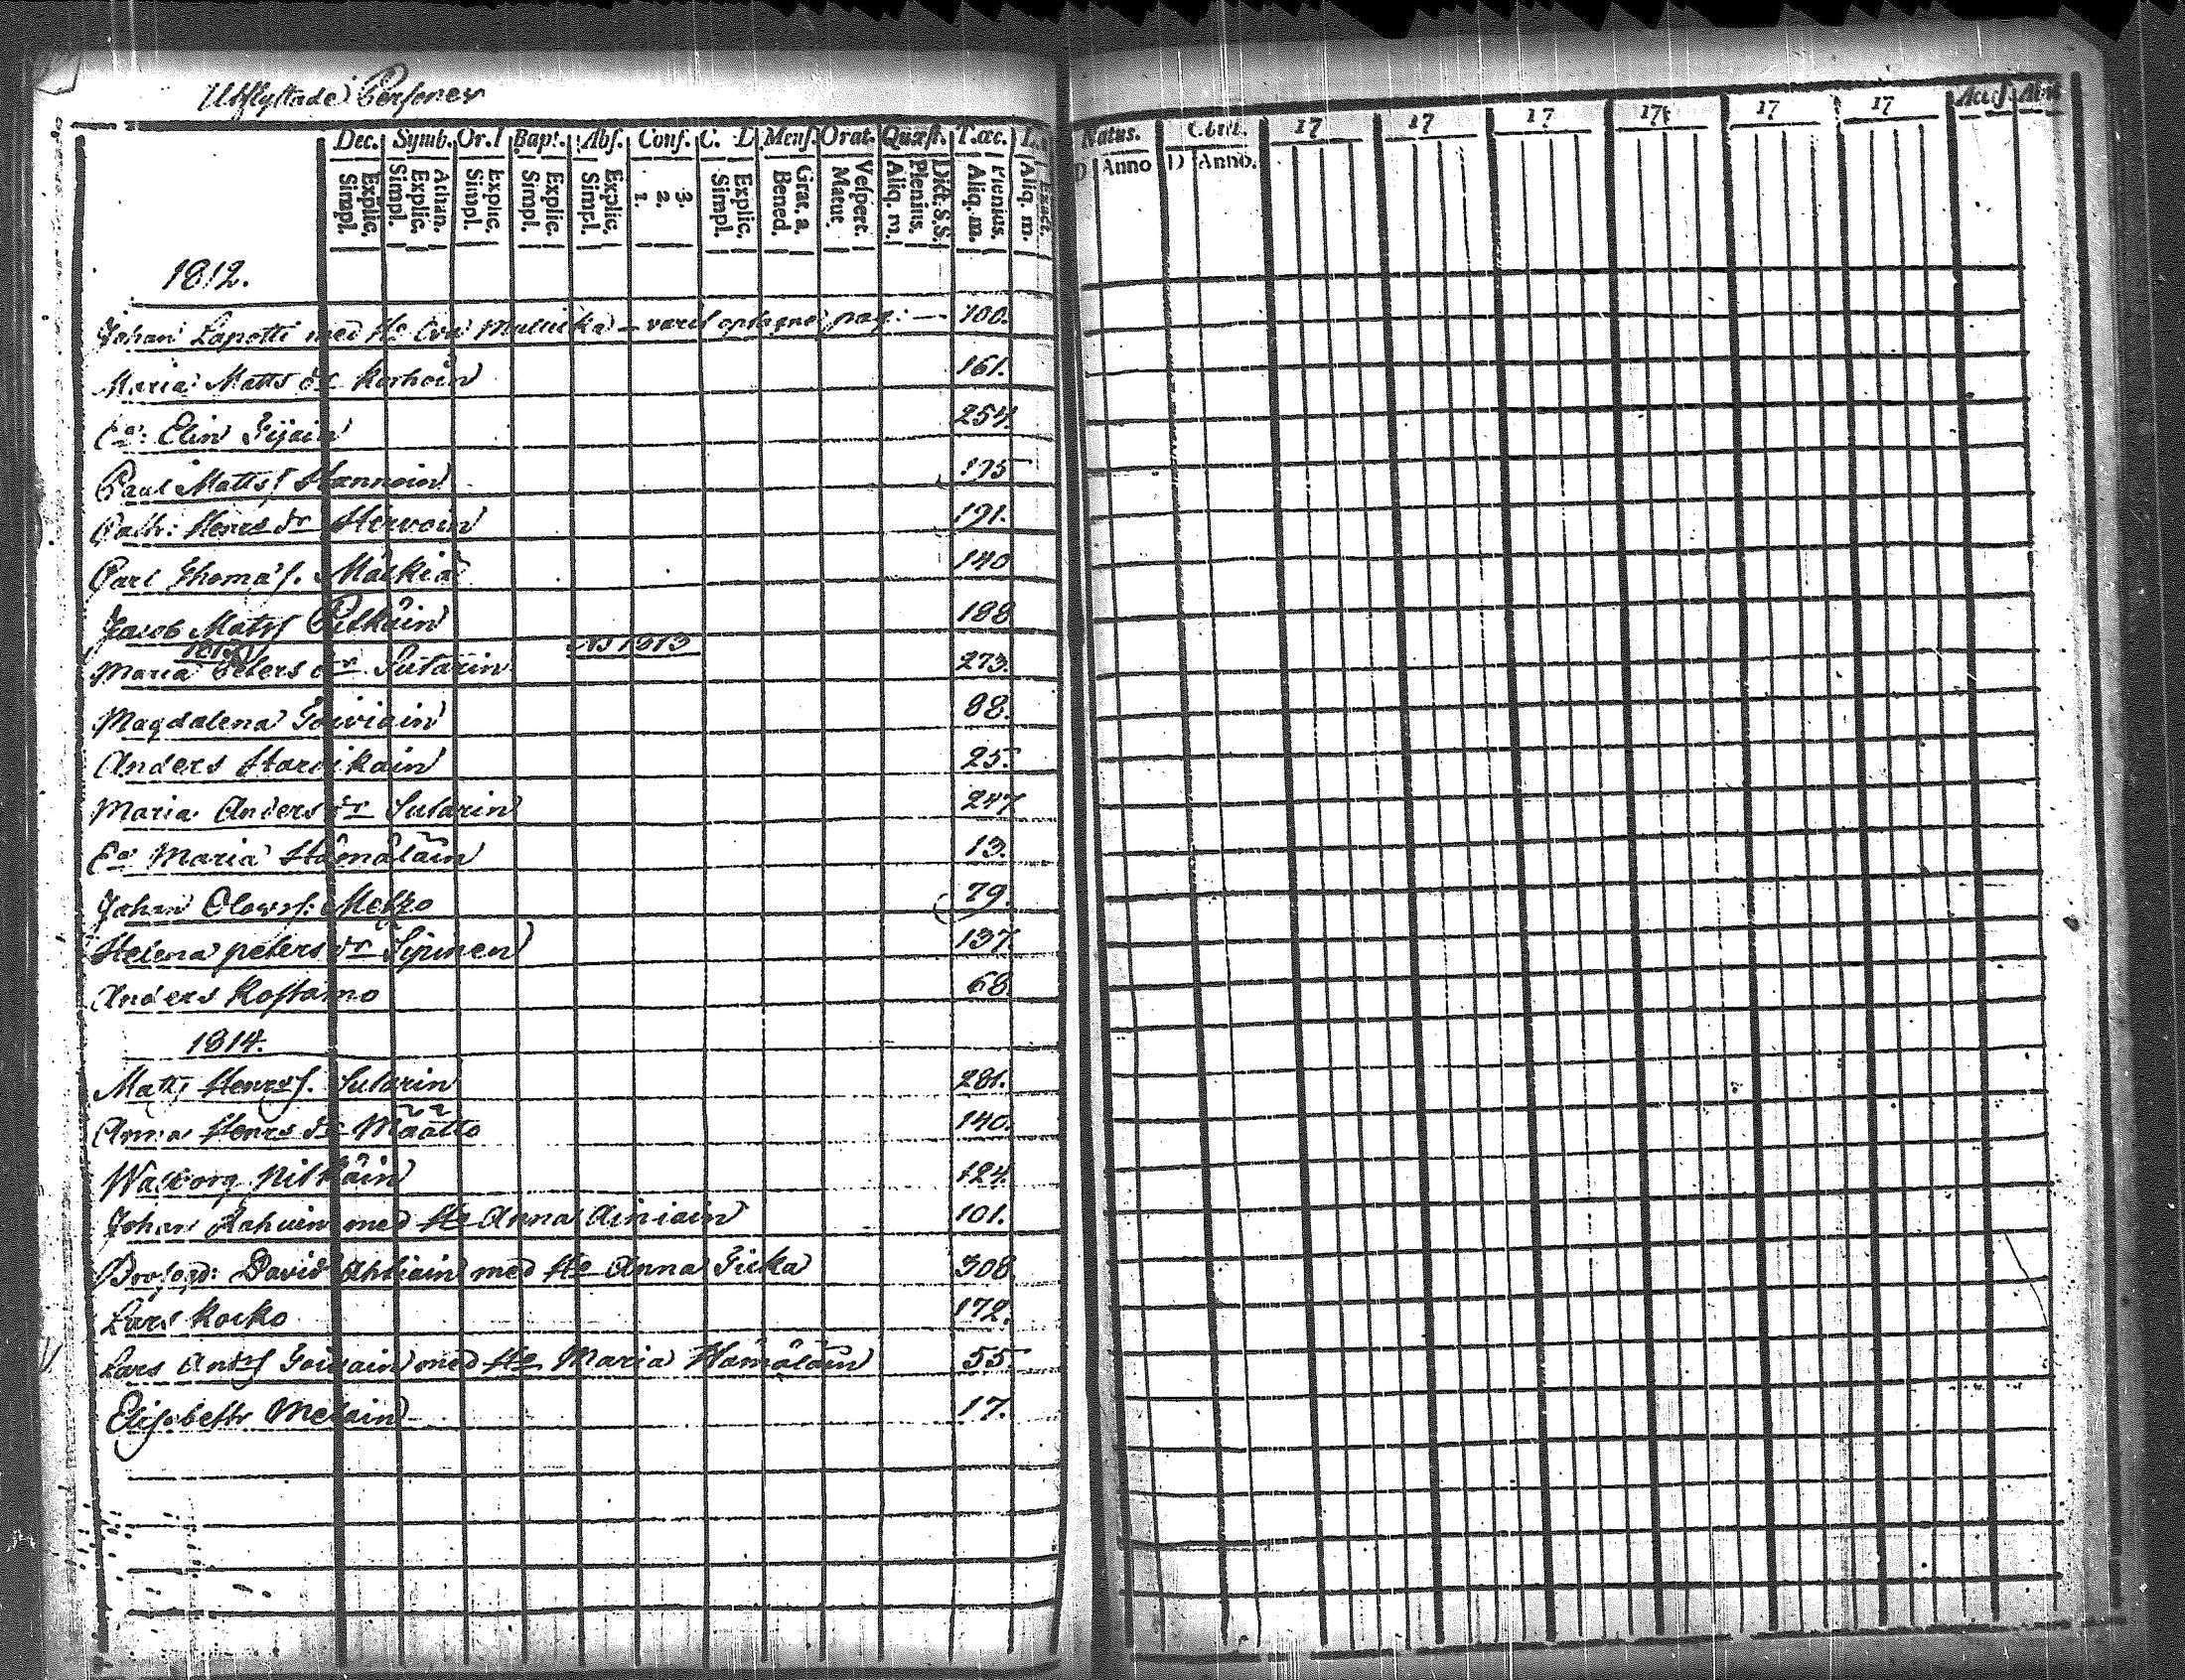 Utflyttade Personer
Dec. Symb. Or. Bapt. Abs. Conf. C. D. Mens. Orat. Quæst. T. œc.
Explic. Simpl. Athan. Explic. Simpl. Explic. Simpl. Explic. Simpl. Explic. Simpl. 3. 2. 1. Explic. Simpl. Grat. a. Bened. Vespert. Matut. Dict. S.S. Plenius. Aliq. m. Plenius. Aliq. m. Exact. Aliq. m.
1812.
Johan Lapotti med Ho Eva - varit optagne pag: — 100.
Maria Matts dr Korhoin 161.
Elin 254.
Paul Mattsf Hannoin 175
Cath: Henrs dr Hirvoin 191.
Carl Thomasf. 140
Jacob Matsf Pitkäin 188
No 1813
Maria Peters dr Sutarin 273.
Magdalena Toiviain 88.
Anders Harikain 25.
Maria Anders dr Sutarin 247
Eo Maria Hämäläin 13.
Johan Olowsf: 79.
Helena peters dr 137.
Anders Kostamo 68
1814.
Matts Henrsf. Sutarin 281.
Anna Henrs dr Määttö 140.
Walborg Pitkäin 124.
Johan med Ho Anna 101.
David med Ho Anna 308
Lars Kocko 172.
Lars Andsf Toiviain med Ho Maria Hämäläin 55
Elisabeth 17.
Natus. Obiit. 17 17 17 17 17 17 Acc. Abiit
D Anno D Anno.